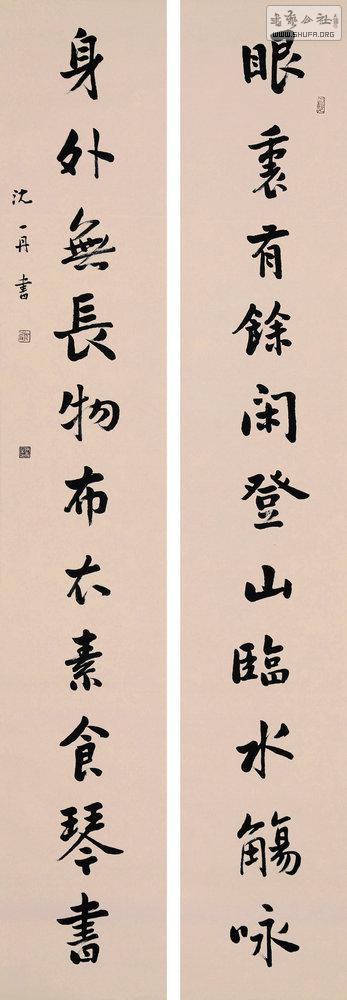 眼裏有餘閑登山臨水觴咏
身外無長物布衣素食琴書
沈一丹書
書藝公社
WWW.SHUFA.ORG